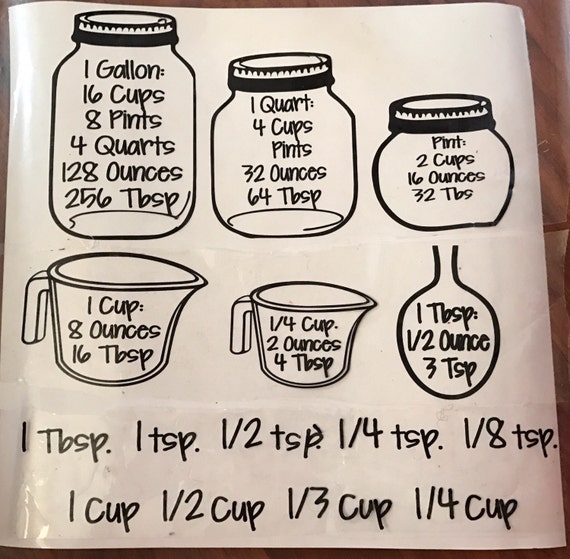 1 Gallon:
16 Cups
8 Pints
4 Quarts
128 Ounces
256 Tbsp
1 Quart:
4 Cups
Pints
32 Ounces
64 Tbsp
Pint:
2 Cups
16 Ounces
32 Tbs
1 Cup:
8 Ounces
16 Tbsp
1/4 Cup.
2 Ounces
4 Tbsp
1 Tbsp:
1/2 Ounce
3 Tsp
1 Tbsp. 1 tsp. 1/2 tsp 1/4 tsp. 1/8 tsp.
1 Cup 1/2 Cup 1/3 Cup 1/4 Cup